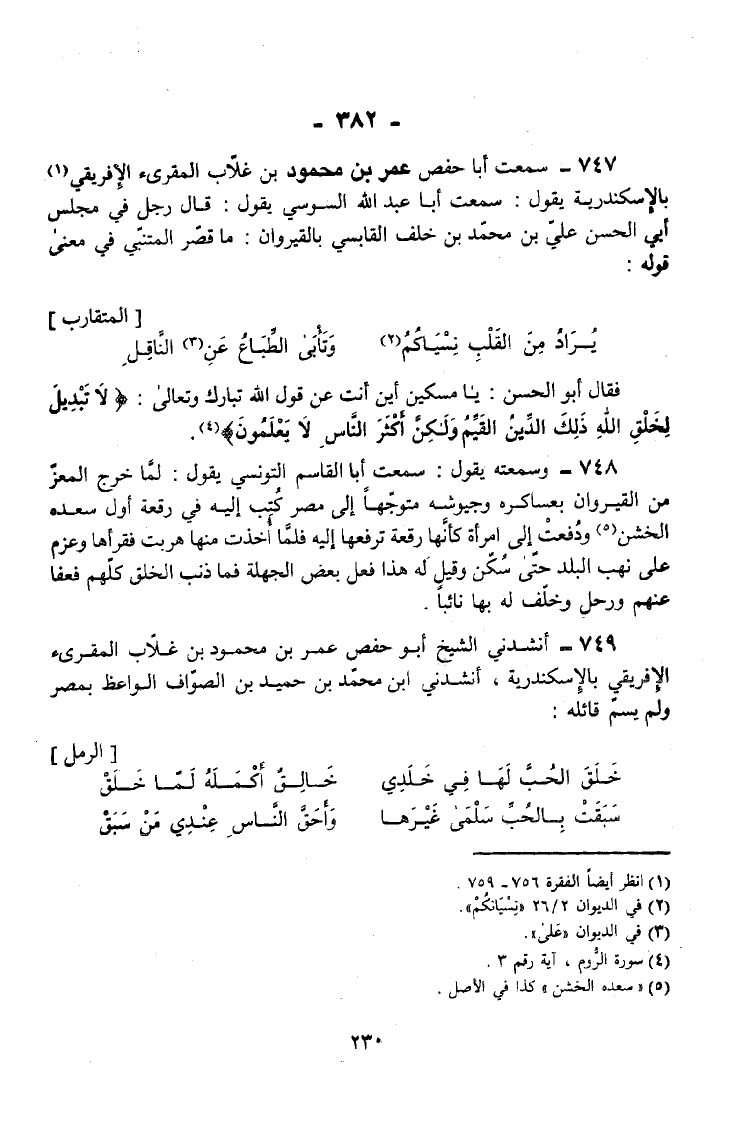 - ٣٨٢ -
٧٤٧ - سمعت أبا حفص عمر بن محمود بن غلّاب المقرىء الإفريقي(١)
بالإسكندرية يقول : سمعت أبا عبد الله السوسي يقول : قال رجل في مجلس
أبي الحسن عليّ بن محمّد بن خلف القابسي بالقيروان : ما قصّر المتنبّي في معنىٰ
قوله :
[ المتقارب ]
يُـرَادُ مِنَ القَلْبِ نِسْيَاكُمُ(٢) وَتَأْبىٰ الطِّبَاعُ عَنِ(٣) النَّاقِلِ
فقال أبو الحسن : يا مسكين أين أنت عن قول الله تبارك وتعالىٰ : ﴿ لَا تَبْدِيلَ
لِخَلْقِ اللهِ ذَلِكَ الدِّينُ القَيِّمُ وَلَـكِنَّ أَكْثَرَ النَّاسِ لَا يَعْلَمُونَ﴾(٤).
٧٤٨ - وسمعته يقول : سمعت أبا القاسم التونسي يقول : لمّا خرج المعزّ
من القيروان بعساكره وجيوشه متوجّهاً إلى مصر كُتِب إليه في رقعة أول سعده
الخشن(٥) ودُفعتْ إلى امرأة كأنّها رقعة ترفعها إليه فلمّا أُخذت منها هربت فقرأها وعزم
على نهب البلد حتّىٰ سُكّن وقيل له هذا فعل بعض الجهلة فما ذنب الخلق كلّهم فعفا
عنهم ورحل وخلّف له بها نائباً .
٧٤٩ - أنشدني الشيخ أبو حفص عمر بن محمود بن غلّاب المقرىء
الإفريقي بالإسكندرية ، أنشدني ابن محمّد بن حميد بن الصوّاف الواعظ بمصر
ولم يسمّ قائله :
[ الرمل ]
خَلَقَ الحُبَّ لَهَا فِي خَلَدِي خَالِقٌ أَكْمَلَهُ لَمَّا خَلَقْ
سَبَقَتْ بِالحُبِّ سَلْمَىٰ غَيْرَها وَأَحَقُّ النَّاسِ عِنْدِي مَنْ سَبَقْ
(١) انظر أيضاً الفقرة ٧٥٦ - ٧٥٩ .
(٢) في الديوان ٢٦/٢ «نِسْيَانكُمْ».
(٣) في الديوان «عَلىٰ».
(٤) سورة الرُّوم ، آية رقم ٣ .
(٥) « سعده الخشن » كذا في الأصل .
٢٣٠